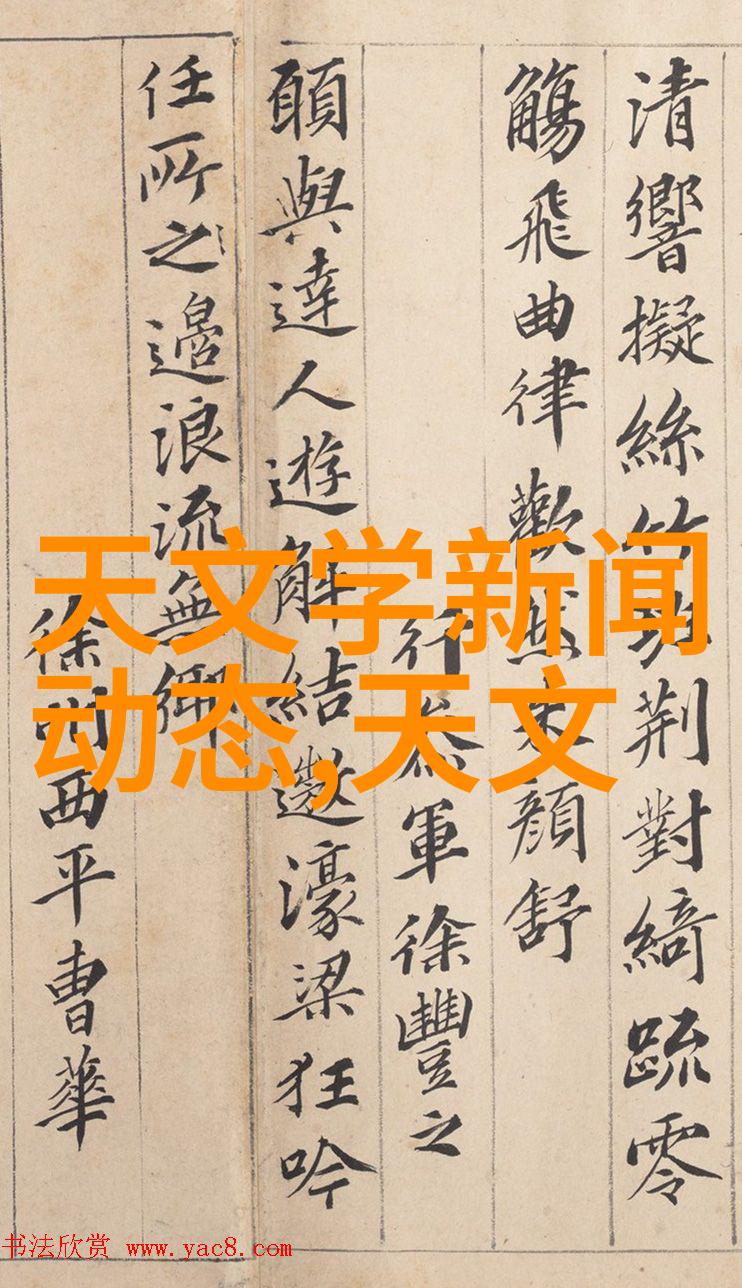 清響擬絲竹班荊對綺䟽零
觴飛曲律歡然朱顏舒
行叅軍徐豐之
願與達人遊解結遨濠梁狂吟
任所之邉浪流無鄉
徐州西平曹華
天文学新闻
动态,天文
书法欣赏 www.yac8.com